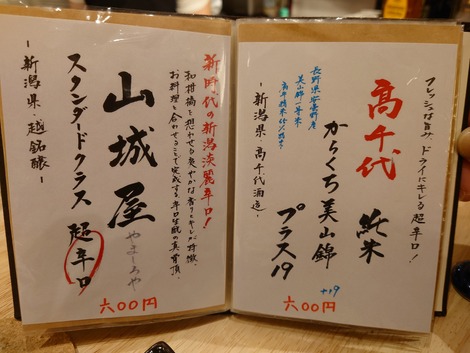 フレッシュな旨み、ドライにキレる超辛口!
高千代 純米
からくち美山錦
プラス19
+19
長野県安曇野産
美山錦一等米
-新潟県・高千代酒造-
六00円
新時代の新潟淡麗辛口!
和柑橘を想わせる爽やかな香りとキレが特徴。
お料理と合わせることで完成する辛口生酛の真骨頂。
山城屋
やましろや
スタンダードクラス 超辛口
-新潟県・越銘醸-
六00円